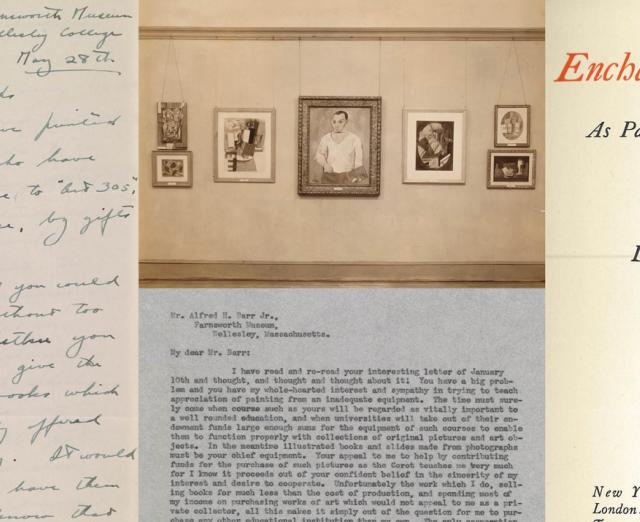 nsworth Museum
llesley College
May 28th
ve printed
ho have
e, to "Art 305",
se, by gifts
you could
thout too
ether you
give the
ooks which
offered
It would
have them
now that
Mr. Alfred H. Barr Jr.,
Farnsworth Museum,
Wellesley, Massachusetts.
My dear Mr. Barr:
I have read and re-read your interesting letter of January
10th and thought, and thought and thought about it! You have a big prob-
lem and you have my whole-hearted interest and sympathy in trying to teach
appreciation of painting from an inadequate equipment. The time must sure-
ly come when course such as yours will be regarded as vitally important to
a well rounded education, and when universities will take out of their en-
dowment funds large enough sums for the equipment of such courses to enable
them to function properly with collections of original pictures and art ob-
jects. In the meantime illustrated books and slides made from photographs
must be your chief equipment. Your appeal to me to help by contributing
funds for the purchase of such pictures as the Corot touches me very much
for I know it proceeds out of your confident belief in the sincerity of my
interest and desire to cooperate. Unfortunately the work which I do, sell-
ing books for much less than the cost of production, and spending most of
my income on purchasing works of art which would not appeal to me as a pri-
vate collector, all this makes it simply out of the question for me to pur-
chase any other educational institution than my own. The only
Encha
As Pa
New Y
London